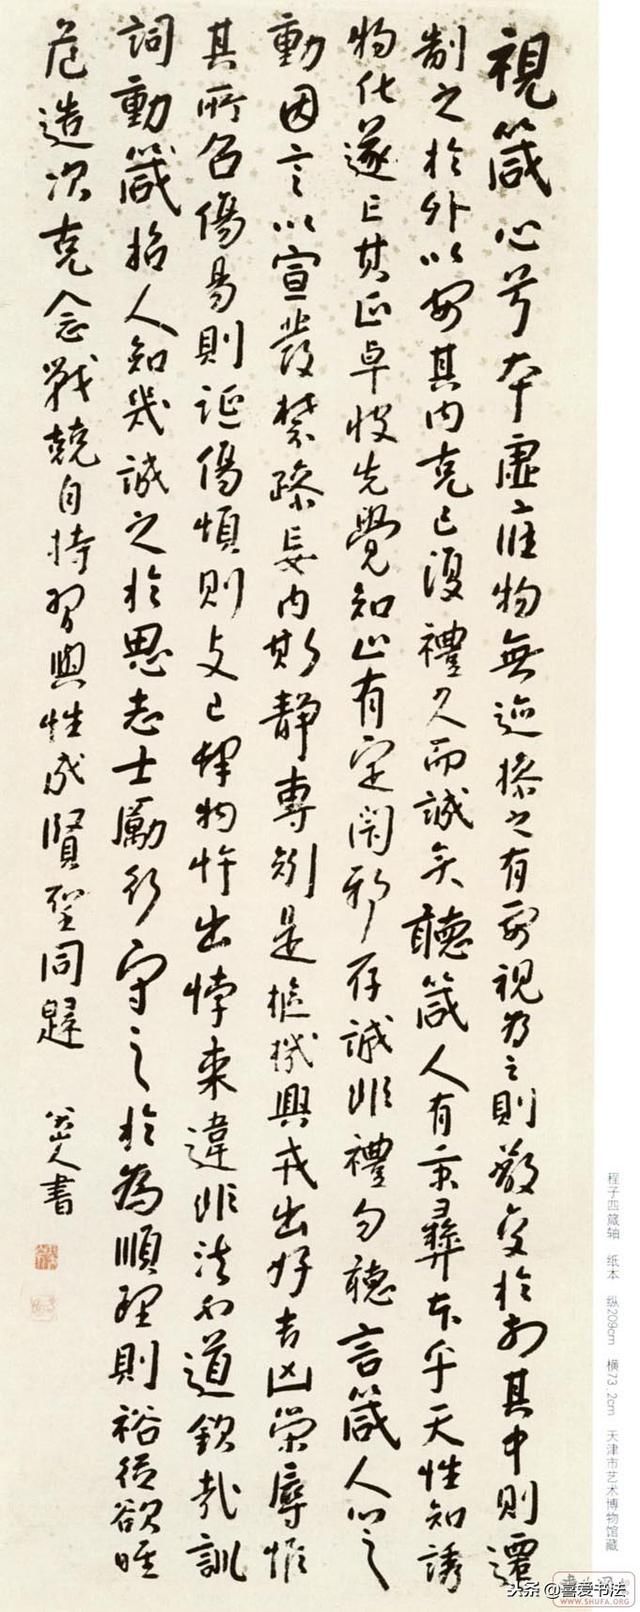 視箴心兮本虛應物無迹操之有要視為之則蔽交於前其中則遷
制之於外以安其內克己復禮久而誠矣聽箴人有秉彝本乎天性知誘
物化遂亡其正卓彼先覺知止有定閑邪存誠非禮勿聽言箴人心之
動因言以宣發禁躁妄內斯靜專矧是樞機興戎出好吉凶榮辱惟
其所召傷易則誕傷煩則支己肆物忤出悖來違非法不道欽哉訓
詞動箴哲人知幾誠之於思志士勵行守之於為順理則裕從欲唯
危造次克念戰兢自持習與性成賢聖同歸
八大山人書
程子四箴轴 纸本 纵209cm 横73.2cm 天津市艺术博物馆藏
WWW.SHUFA.ORG
头条@喜爱书法